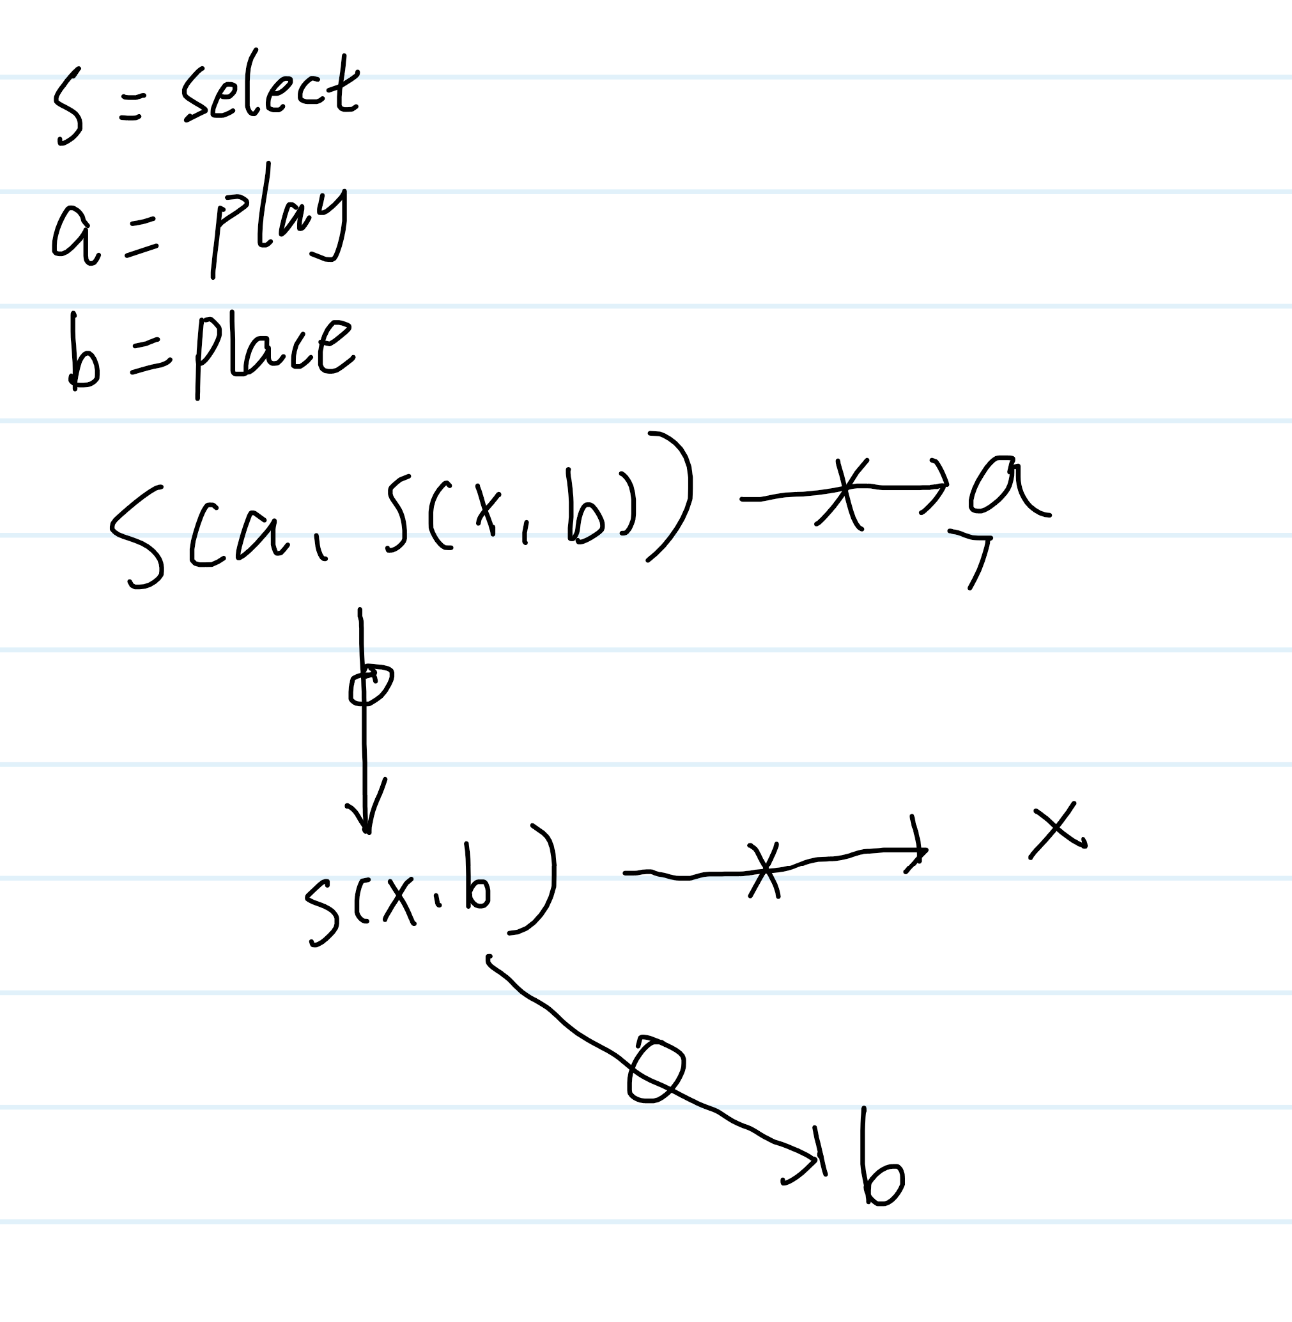 S = select
a = play
b = place
S(a, S(x, b)) a
S(x, b) x
b